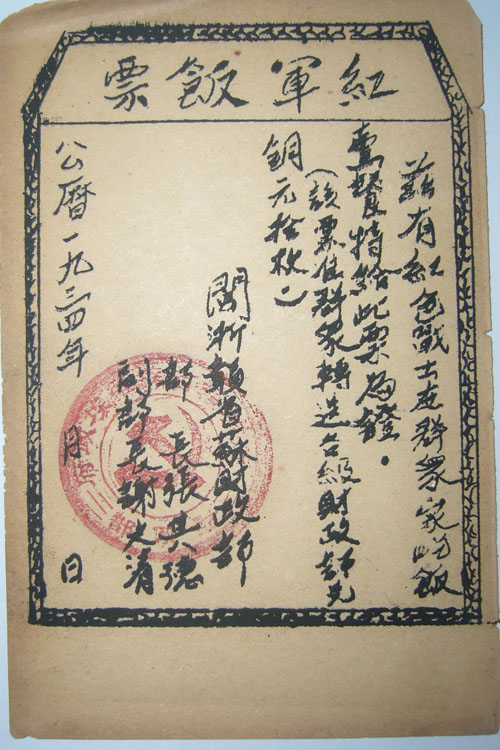 紅軍飯票
茲有紅色戰士在群衆家吃飯
壹餐特給此票為證。
(該票准群衆轉送各級財政部兑
銅元拾枚)
閩浙贛省蘇財政部
部 長張其德
副部長謝文清
公曆一九三四年 月 日